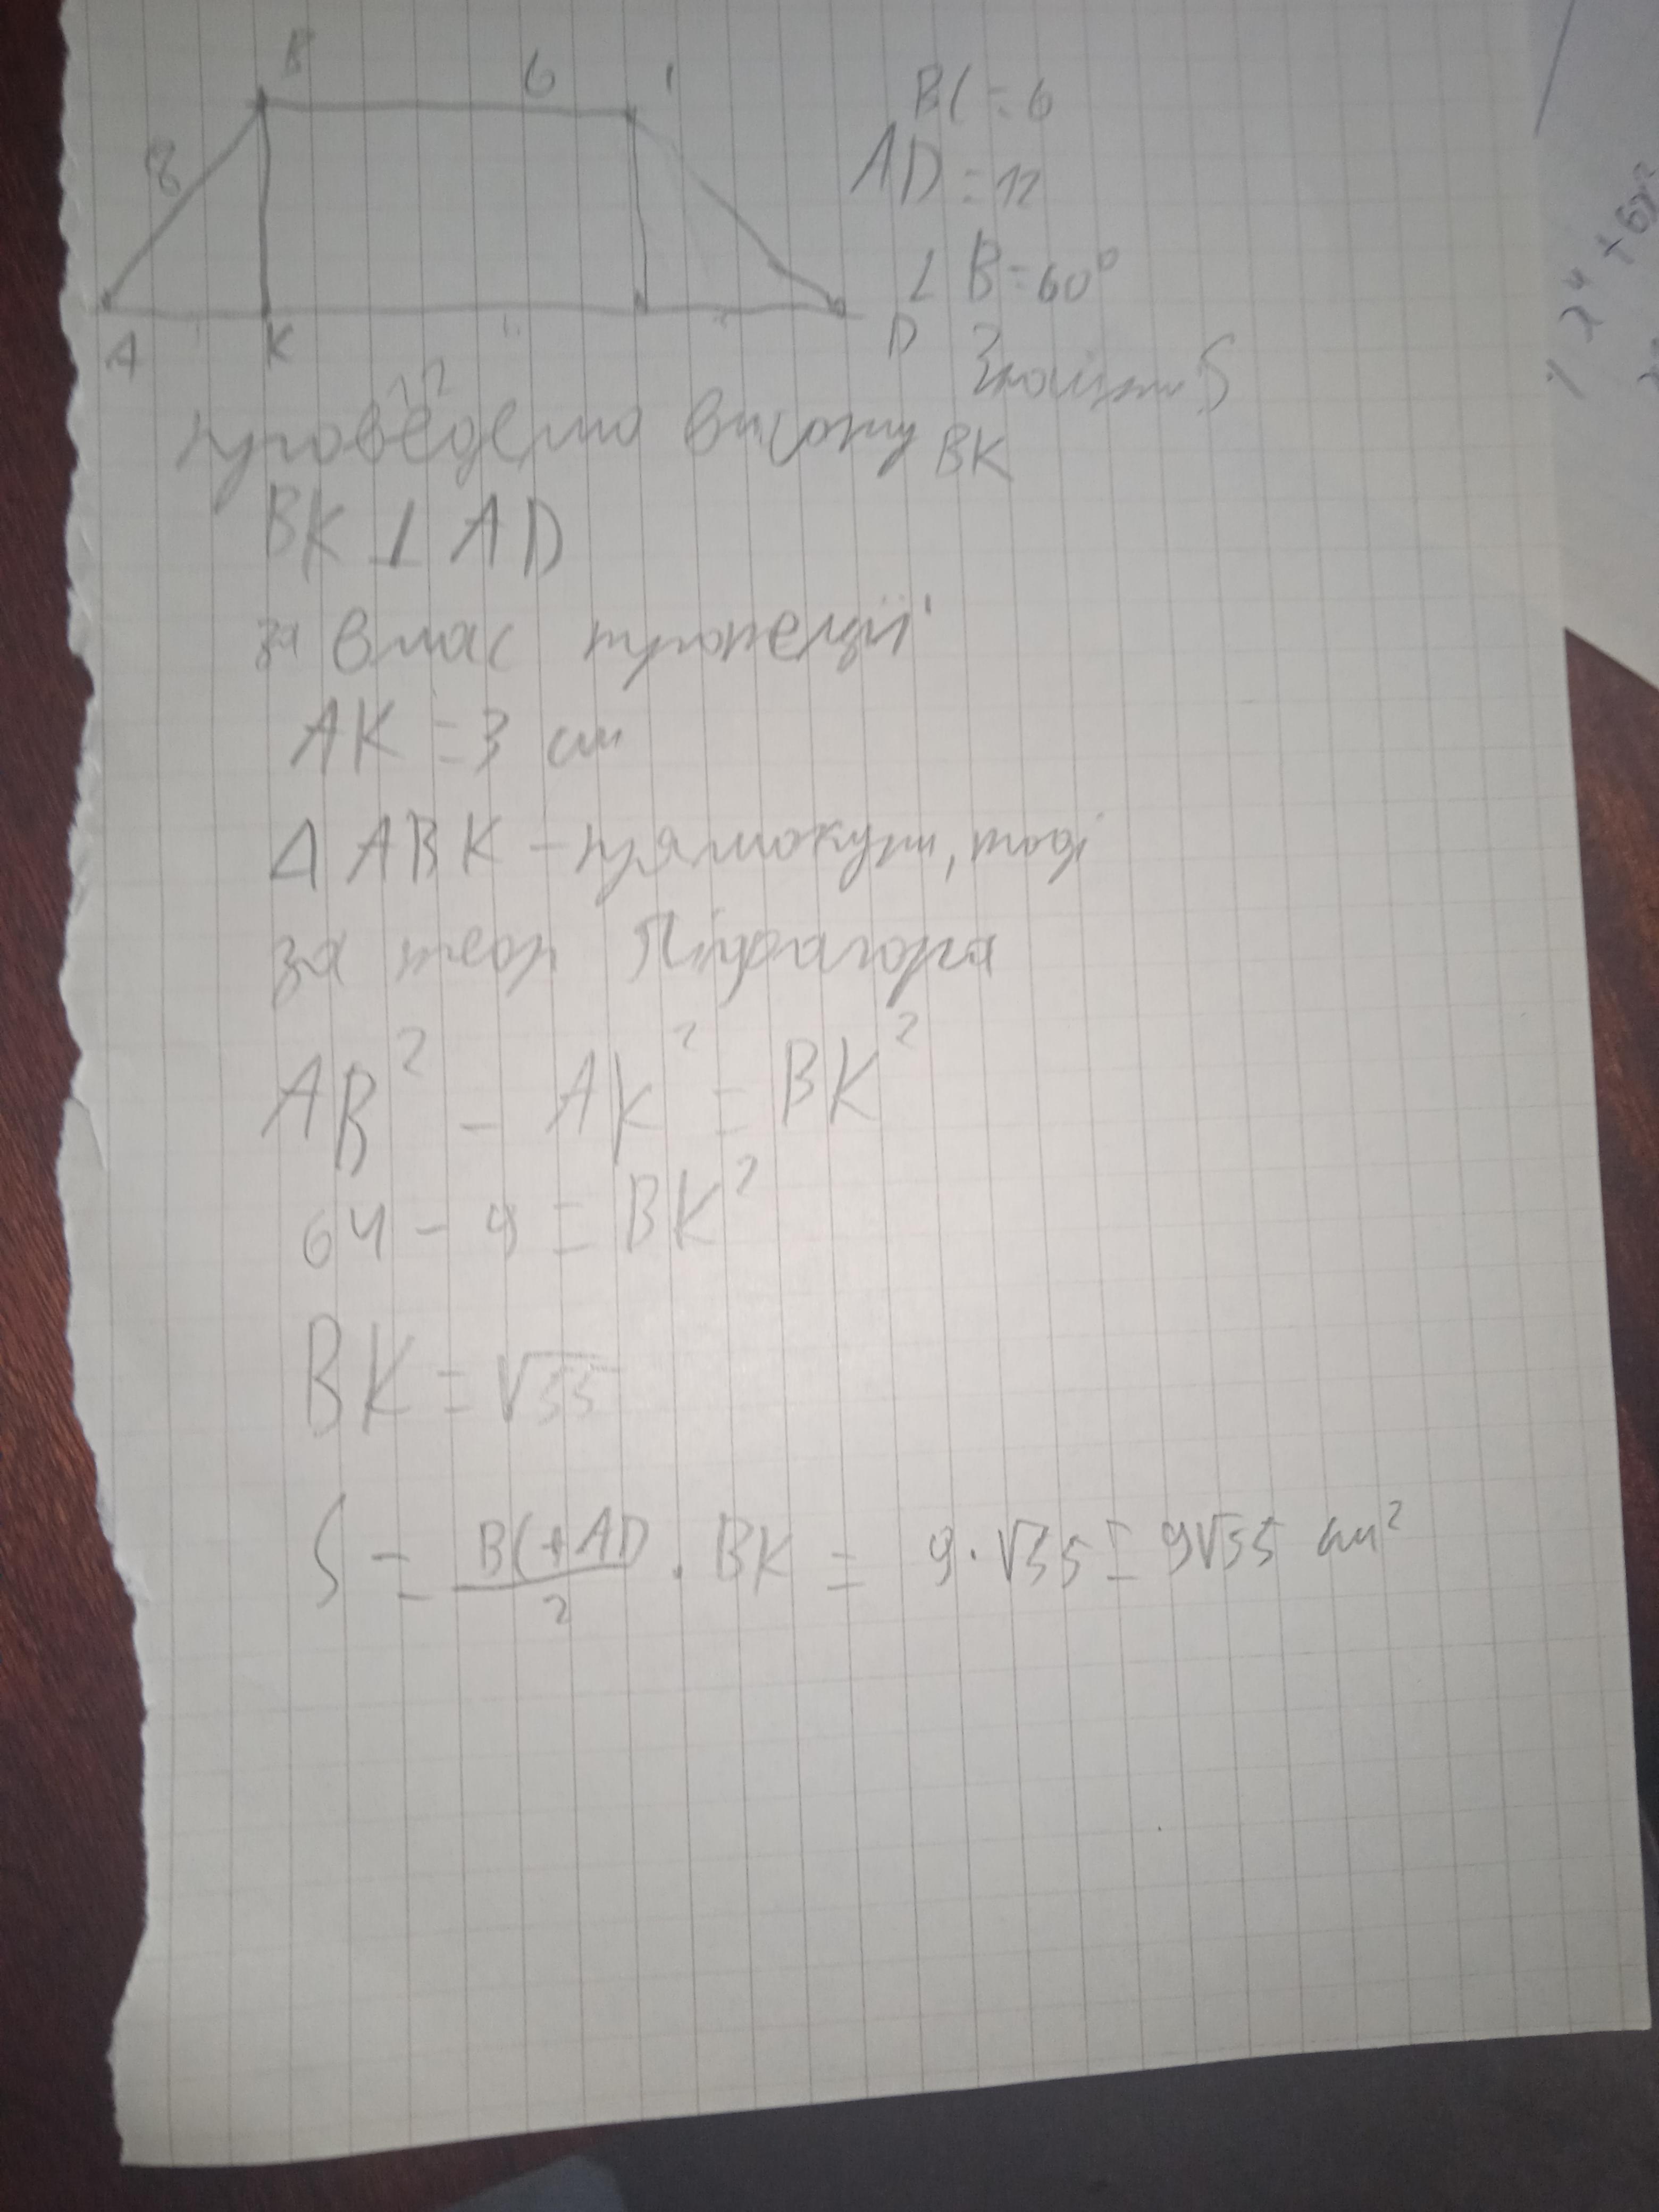 B 6
BC = 6
8
AD = 12
∠ B = 60°
A K D
Знайти S
12
проведемо висоту BK
BK ⊥ AD
за влас трапеції
AK = 3 см
Δ ABK - прямокутн, тоді
за теор Піфагора
AB² - AK² = BK²
64 - 9 = BK²
BK = √55
S = BC+AD/2 · BK = 9 · √55 = 9√55 см²